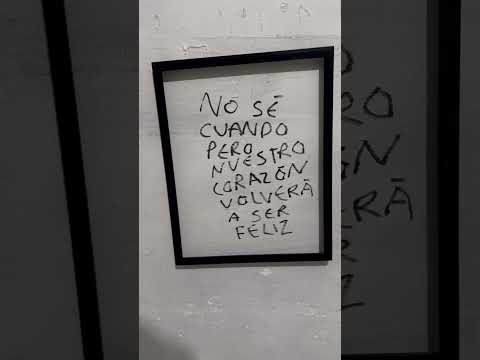 NO SÉ
CUANDO
PERO
NUESTRO
CORAZÓN
VOLVERÁ
A SER
FELIZ